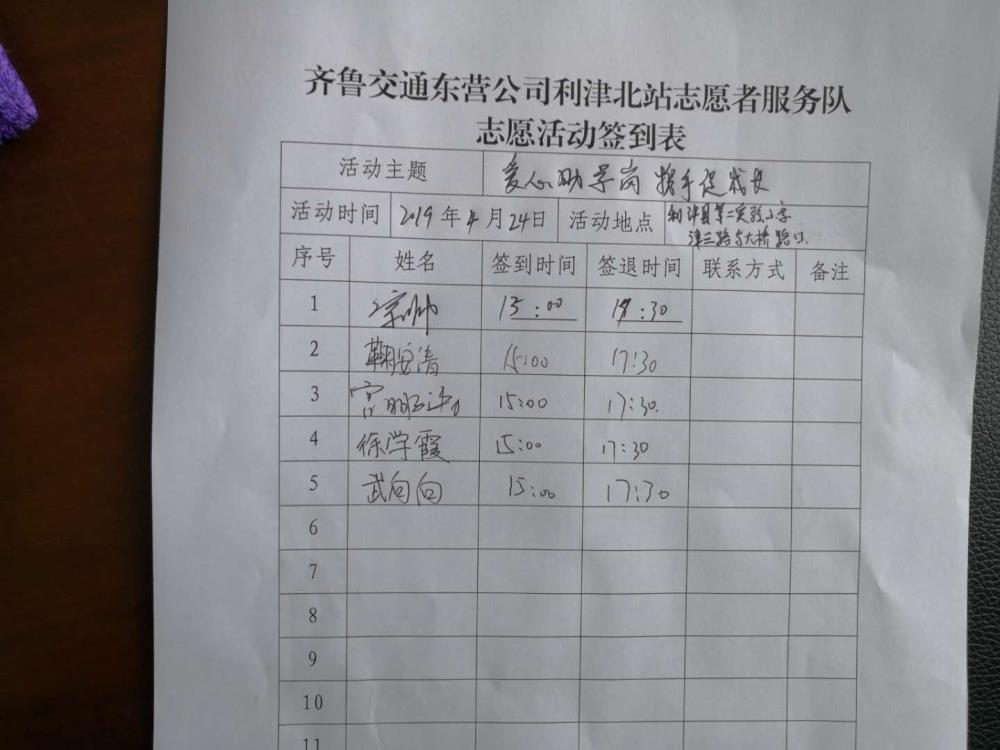 齐鲁交通东营公司利津北站志愿者服务队
志愿活动签到表
活动主题 爱心助学岗 携手促成长
活动时间 2019年4月24日 活动地点 利津县第二实验小学
津三路与大桥路口.
序号 姓名 签到时间 签退时间 联系方式 备注
1 15:00 17:30
2 鞠安清 15:00 17:30
3 15:00 17:30.
4 徐学霞 15:00 17:30
5 武向向 15:00 17:30
6
7
8
9
10
11